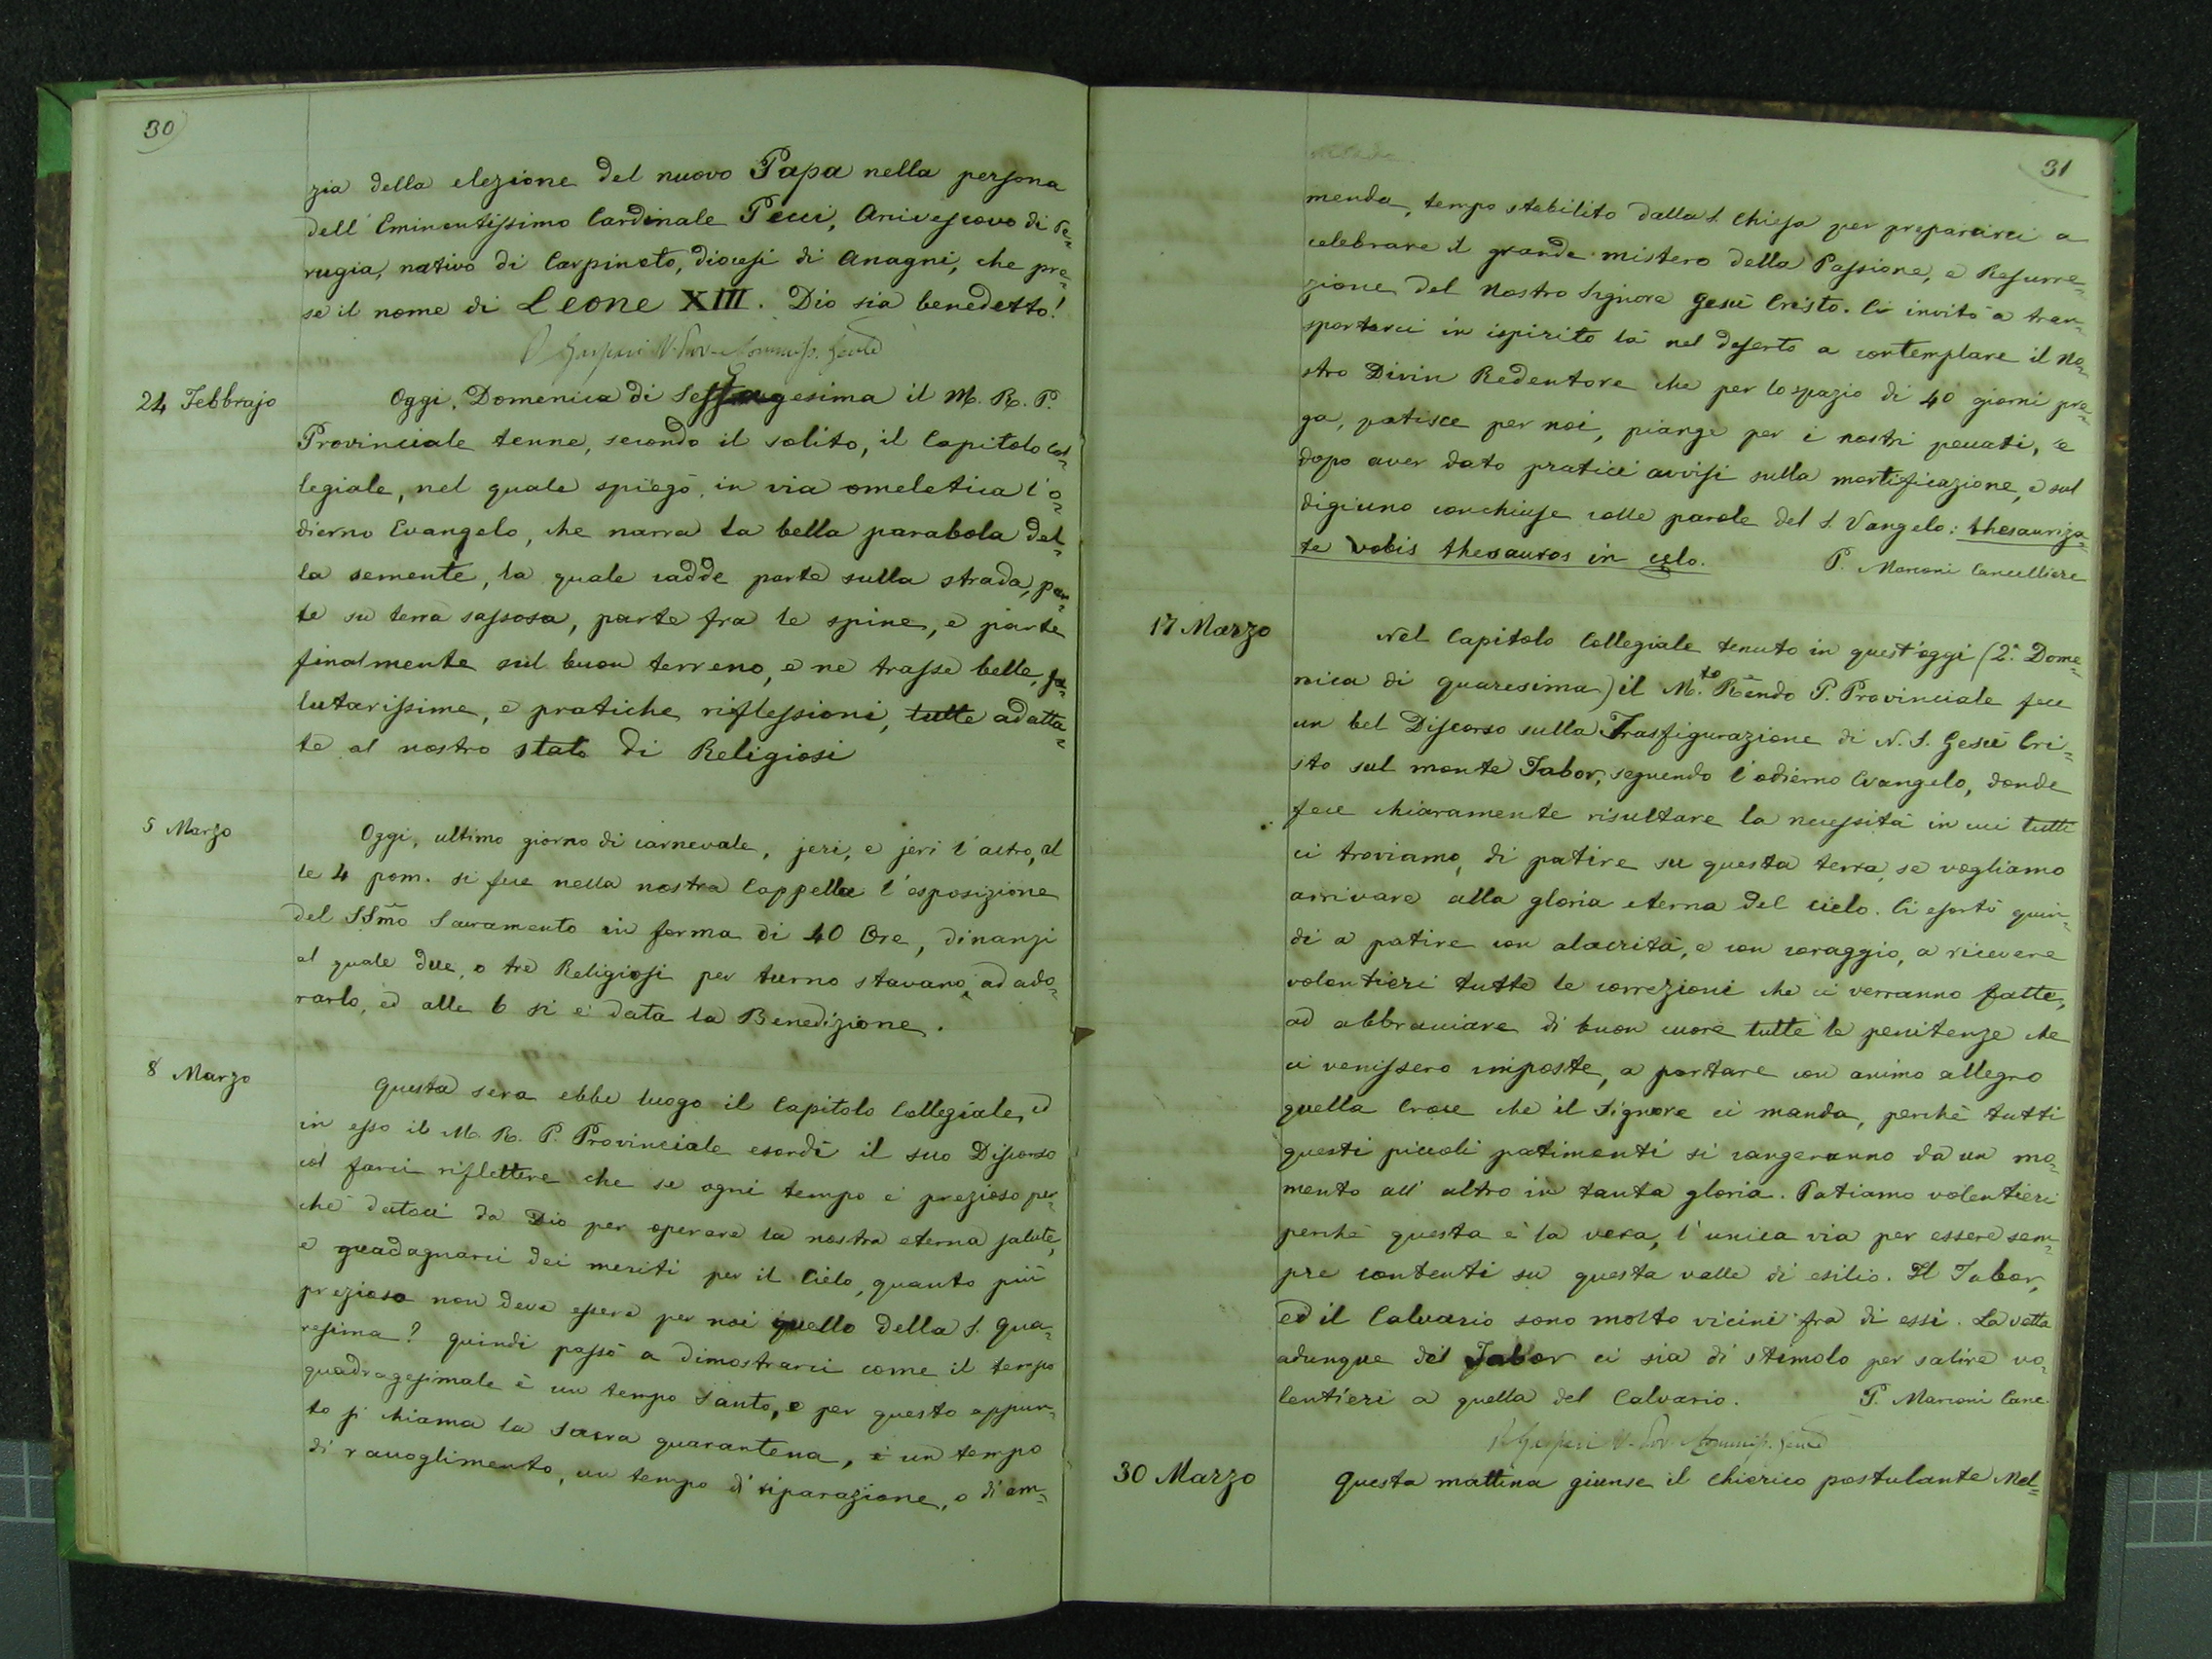 30
zia della elezione del nuovo Papa nella persona
dell' Eminentissimo Cardinale Pecci, Arcivescovo di Pe=
rugia, nativo di Carpineto, diocesi di Anagni, che pre=
se il nome di Leone XIII. Dio sia benedetto!
24 Febbrajo
Oggi, Domenica di Sessagesima il M. R. P.
Provinciale tenne, secondo il solito, il Capitolo Col=
legiale, nel quale spiegò in via omeletica l'o=
dierno Evangelo, che narra la bella parabola del=
la semente, la quale cadde parte sulla strada, par=
te su terra sassosa, parte fra le spine, e parte
finalmente sul buon terreno, e ne trasse belle, sa=
lutarissime, e pratiche riflessioni, tutte adatta=
te al nostro stato di Religiosi
5 Marzo
Oggi, ultimo giorno di carnevale, jeri, e jeri l'altro, al
le 4 pom. si fece nella nostra Cappella l'esposizione
del SSmo Sacramento in forma di 40 Ore, dinanzi
al quale due, o tre Religiosi per turno stavano ad ado=
rarlo, ed alle 6 si è data la Benedizione.
8 Marzo
Questa sera ebbe luogo il Capitolo Collegiale, ed
in esso il M. R. P. Provinciale esordì il suo Discorso
col farci riflettere che se ogni tempo è prezioso per=
chè datoci da Dio per operare la nostra eterna salute,
e guadagnarci dei meriti per il Cielo, quanto più
prezioso non deve essere per noi quello della S. Qua=
resima? Quindi passò a dimostrarci come il tempo
quadragesimale è un tempo Santo, e per questo appun=
to si chiama la Sacra quarantena, è un tempo
di raccoglimento, un tempo di riparazione, o di em=
31
menda, tempo stabilito dalla S. Chiesa per prepararci a
celebrare il grande mistero della Passione, e Resurre=
zione del Nostro Signore Gesù Cristo. Ci invitò a tran=
sportarci in ispirito là nel deserto a contemplare il No=
stro Divin Redentore che per lo spazio di 40 giorni pre=
ga, patisce per noi, piange per i nostri peccati, e
dopo aver dato pratici avvisi sulla mortificazione, e sul
digiuno conchiuse colle parole del S. Vangelo: thesauriza=
te vobis thesauros in celo. P. Marconi Cancelliere
17 Marzo
Nel Capitolo Collegiale tenuto in quest'oggi (2ª Dome=
nica di Quaresima) il M.to Rendo P. Provinciale fece
un bel Discorso sulla Trasfigurazione di N. S. Gesù Cri=
sto sul monte Tabor, seguendo l'odierno Evangelo, donde
fece chiaramente risultare la necessità in cui tutti
ci troviamo, di patire su questa terra, se vogliamo
arrivare alla gloria eterna del cielo. Ci esortò quin=
di a patire con alacrità, e con coraggio, a ricevere
volontieri tutte le correzioni che ci verranno fatte,
ad abbracciare di buon cuore tutte le penitenze che
ci venissero imposte, a portare con animo allegro
quella Croce che il Signore ci manda, perchè tutti
questi piccoli patimenti si cangeranno da un mo=
mento all' altro in tanta gloria. Patiamo volentieri
perchè questa è la vera, l'unica via per essere sem=
pre contenti su questa valle di esilio. Il Tabor,
ed il Calvario sono molto vicini fra di essi. La vetta
adunque del Tabor ci sia di stimolo per salire vo=
lentieri a quella del Calvario. P. Marconi Canc.
30 Marzo
Questa mattina giunse il Chierico postulante Mel=